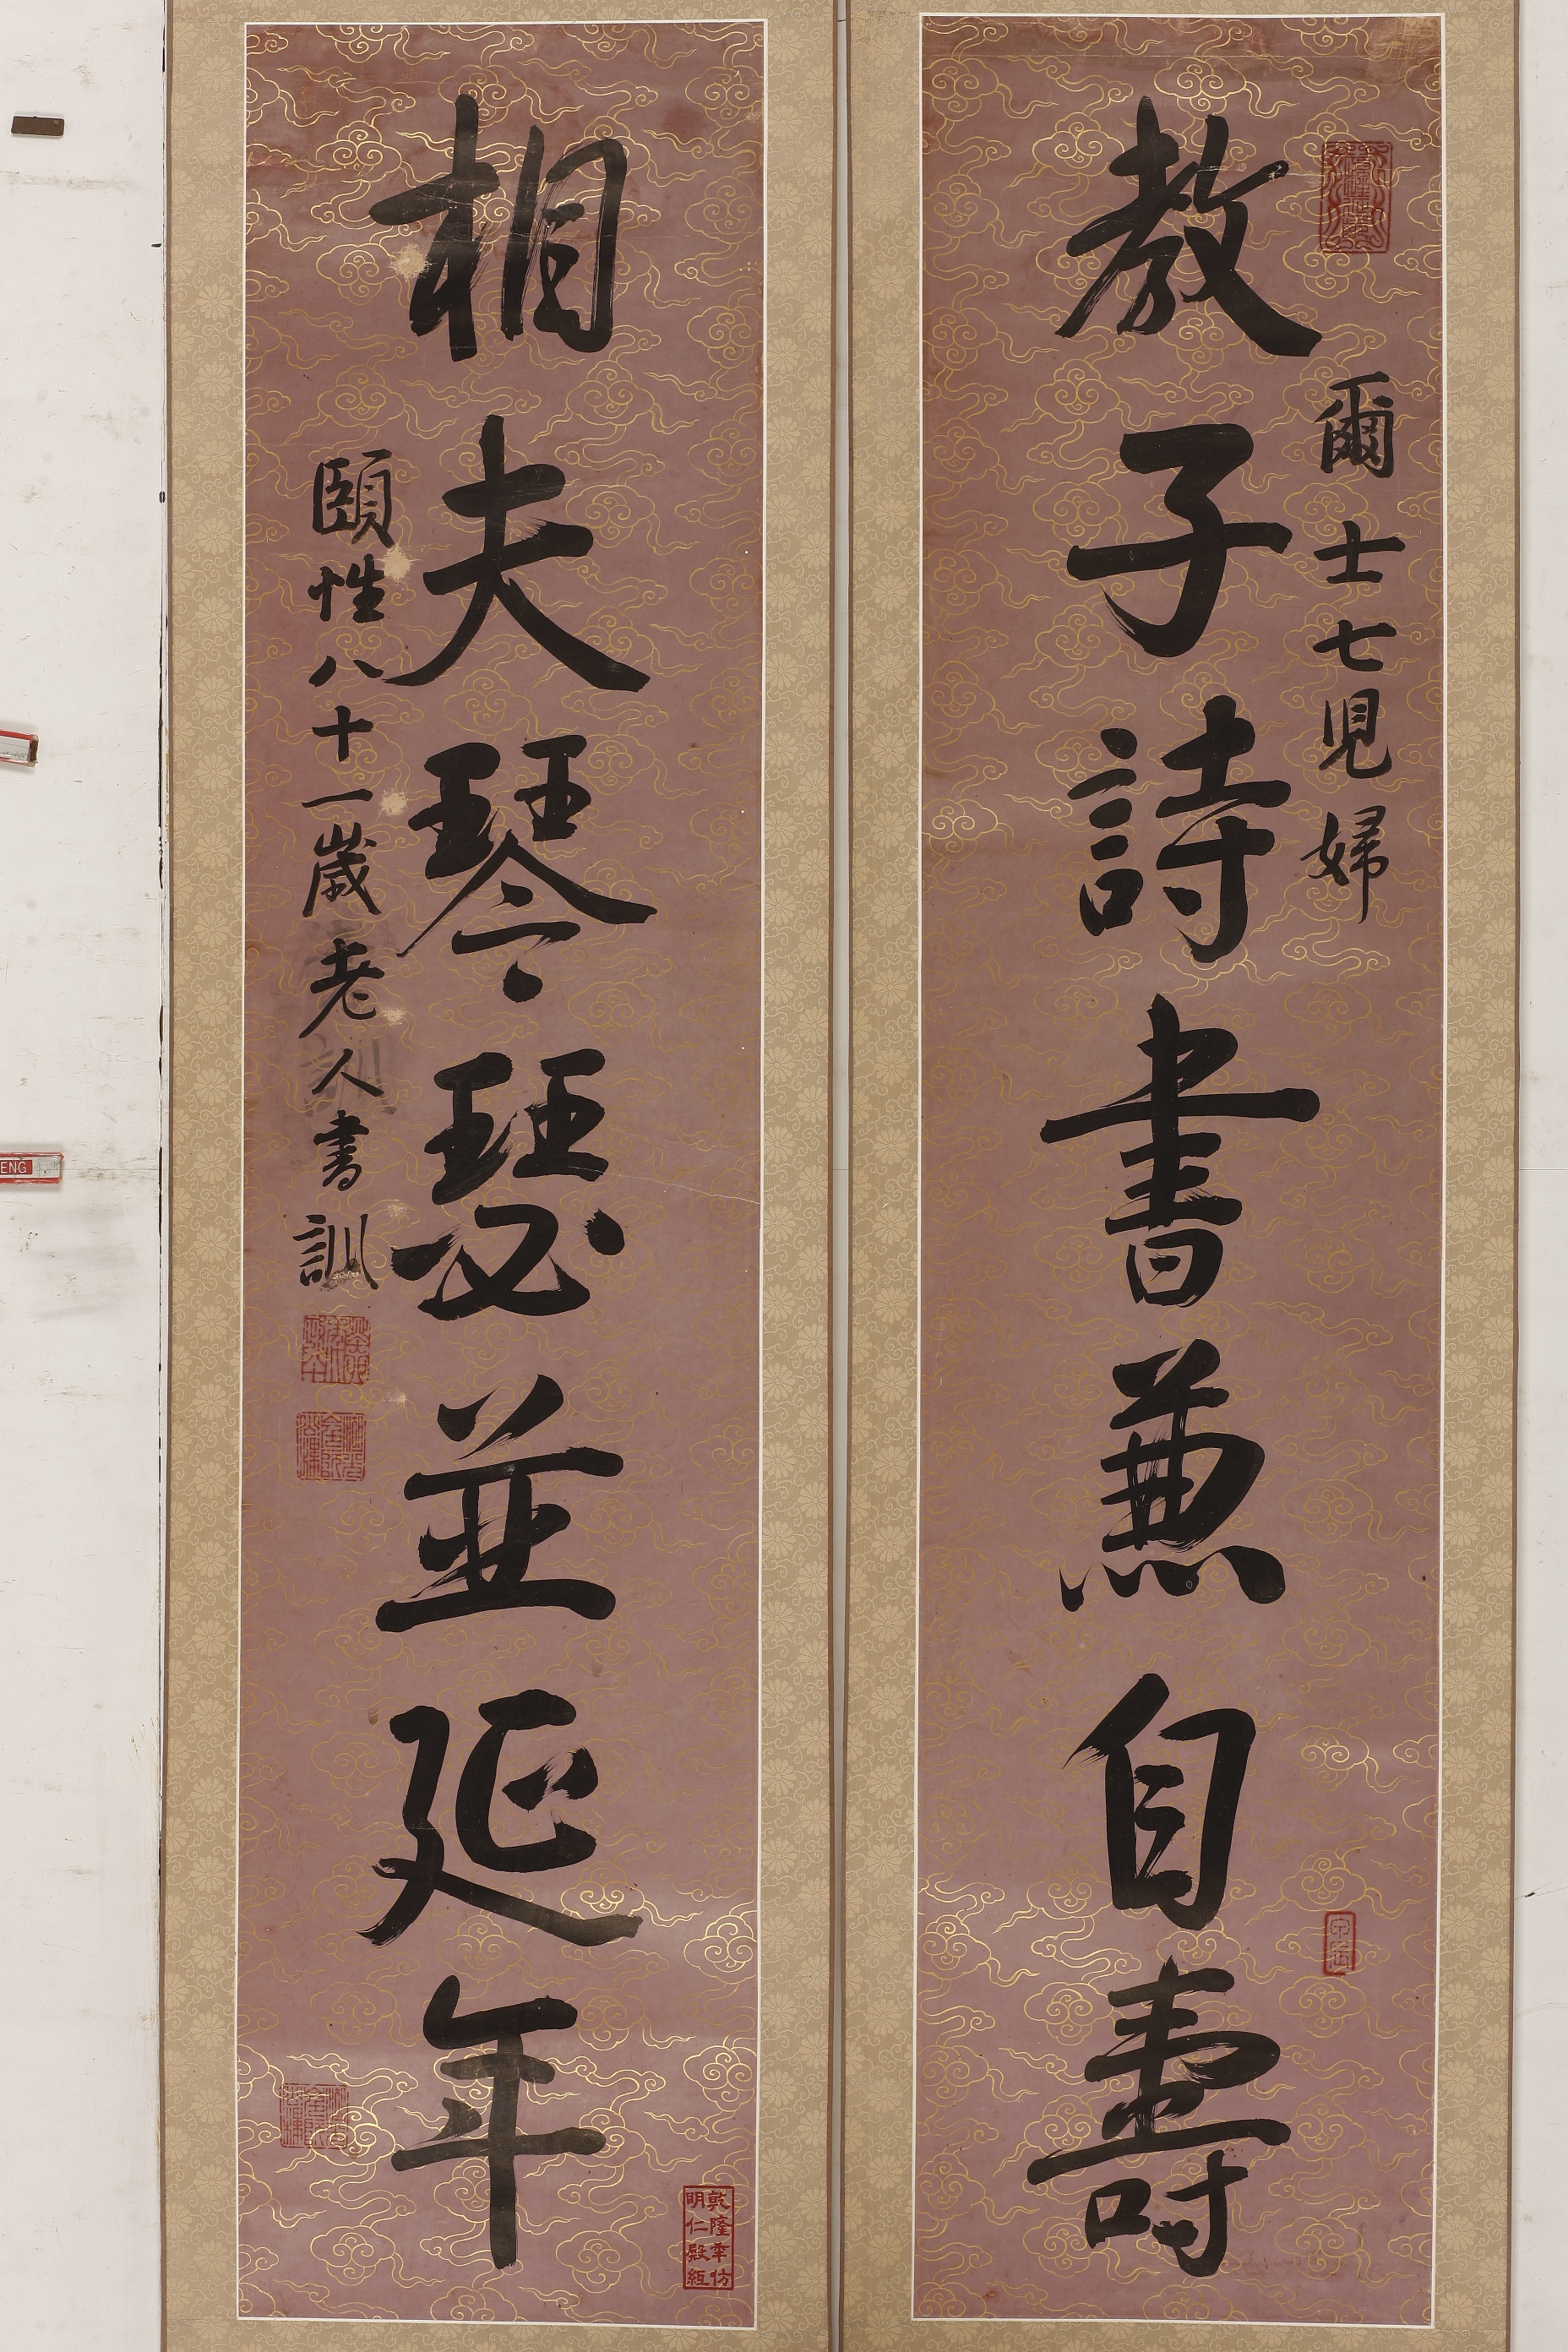 爾士七兒婦
教子詩書兼自壽
相夫琴瑟並延年
頤性八十一歲老人書訓
乾隆年仿
明仁殿紙
ENG